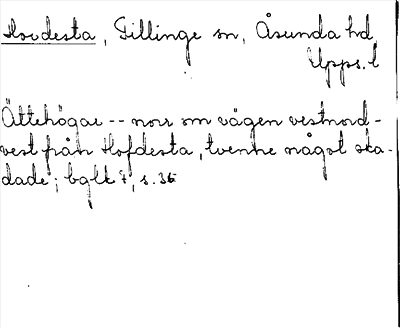 Hovdesta, Tillinge sn, Åsunda hd,
Upps. l
Ättehögar -- norr om vägen vestnord-
vest från Hofdesta, tvenne något ska-
dade; bglt 7, s. 36